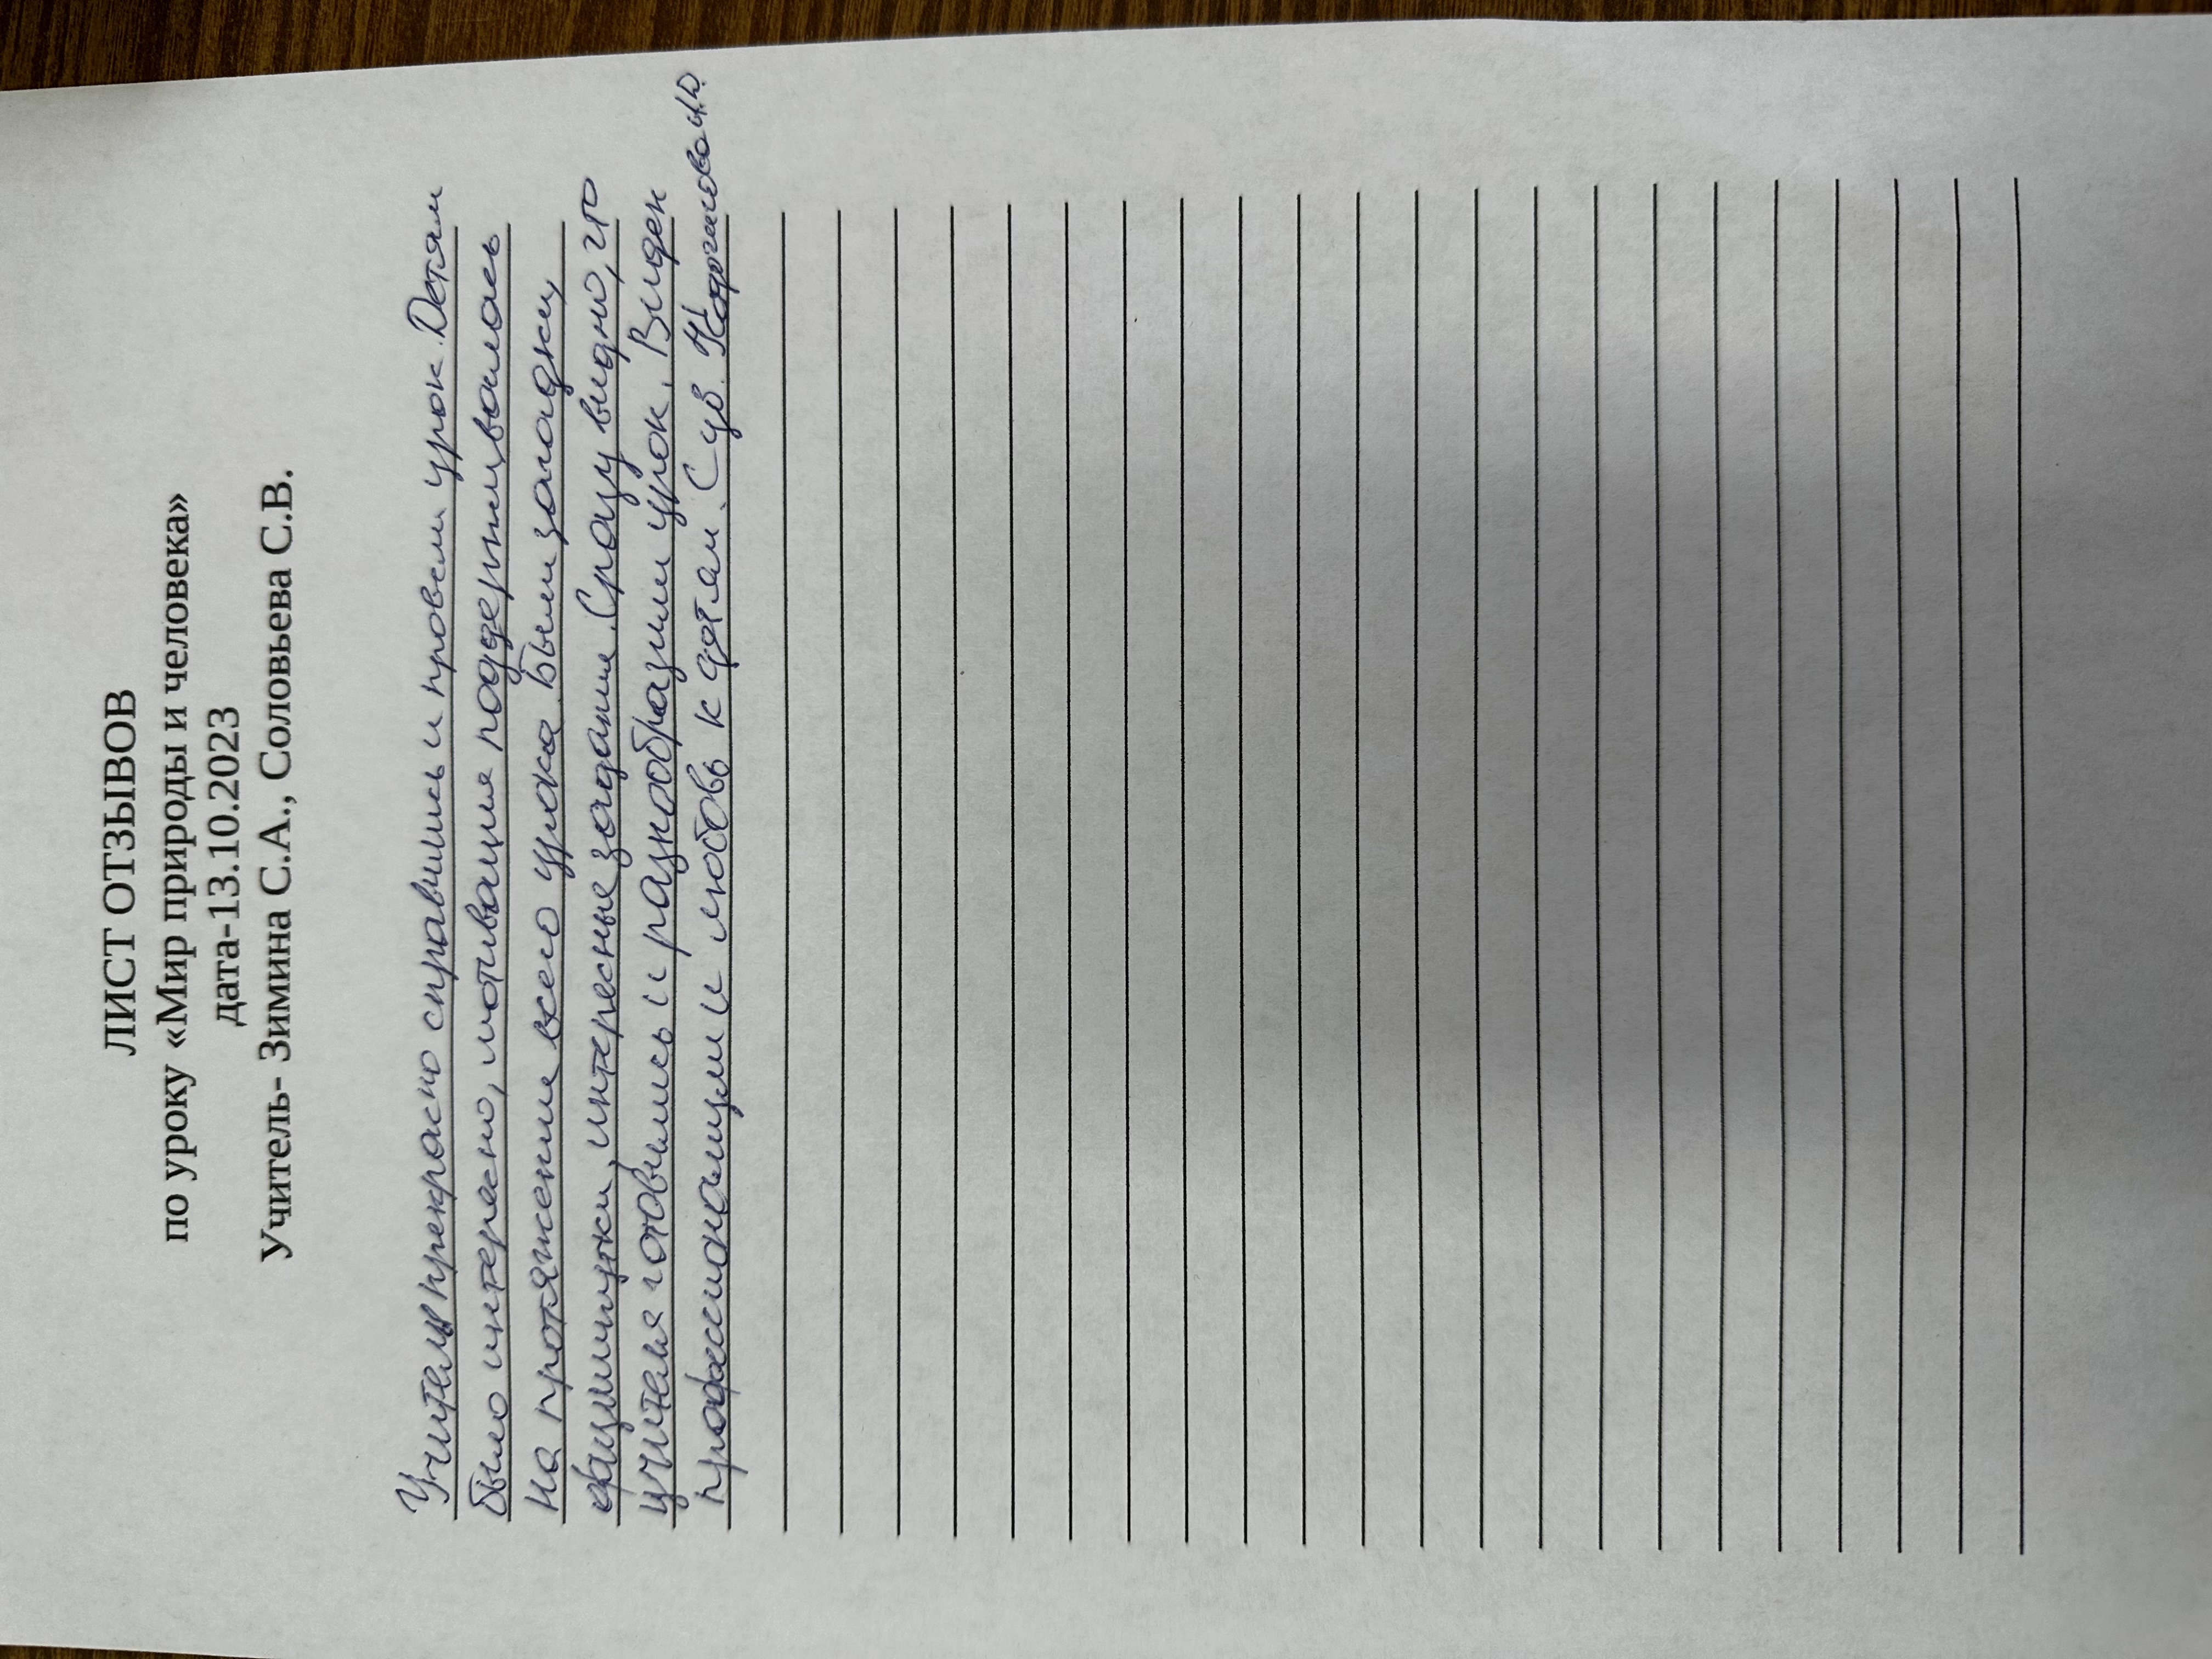 ЛИСТ ОТЗЫВОВ
по уроку «Мир природы и человека»
дата-13.10.2023
Учитель- Зимина С.А., Соловьева С.В.
Учителя прекрасно справились и провели урок. Детям
было интересно, мотивация поддерживалась
на протяжении всего урока. Были загадки,
физминутки, интересные задания. Сразу видно, что
учителя готовились и разнообразили урок. Виден
профессионализм и любовь к детям. С ув.